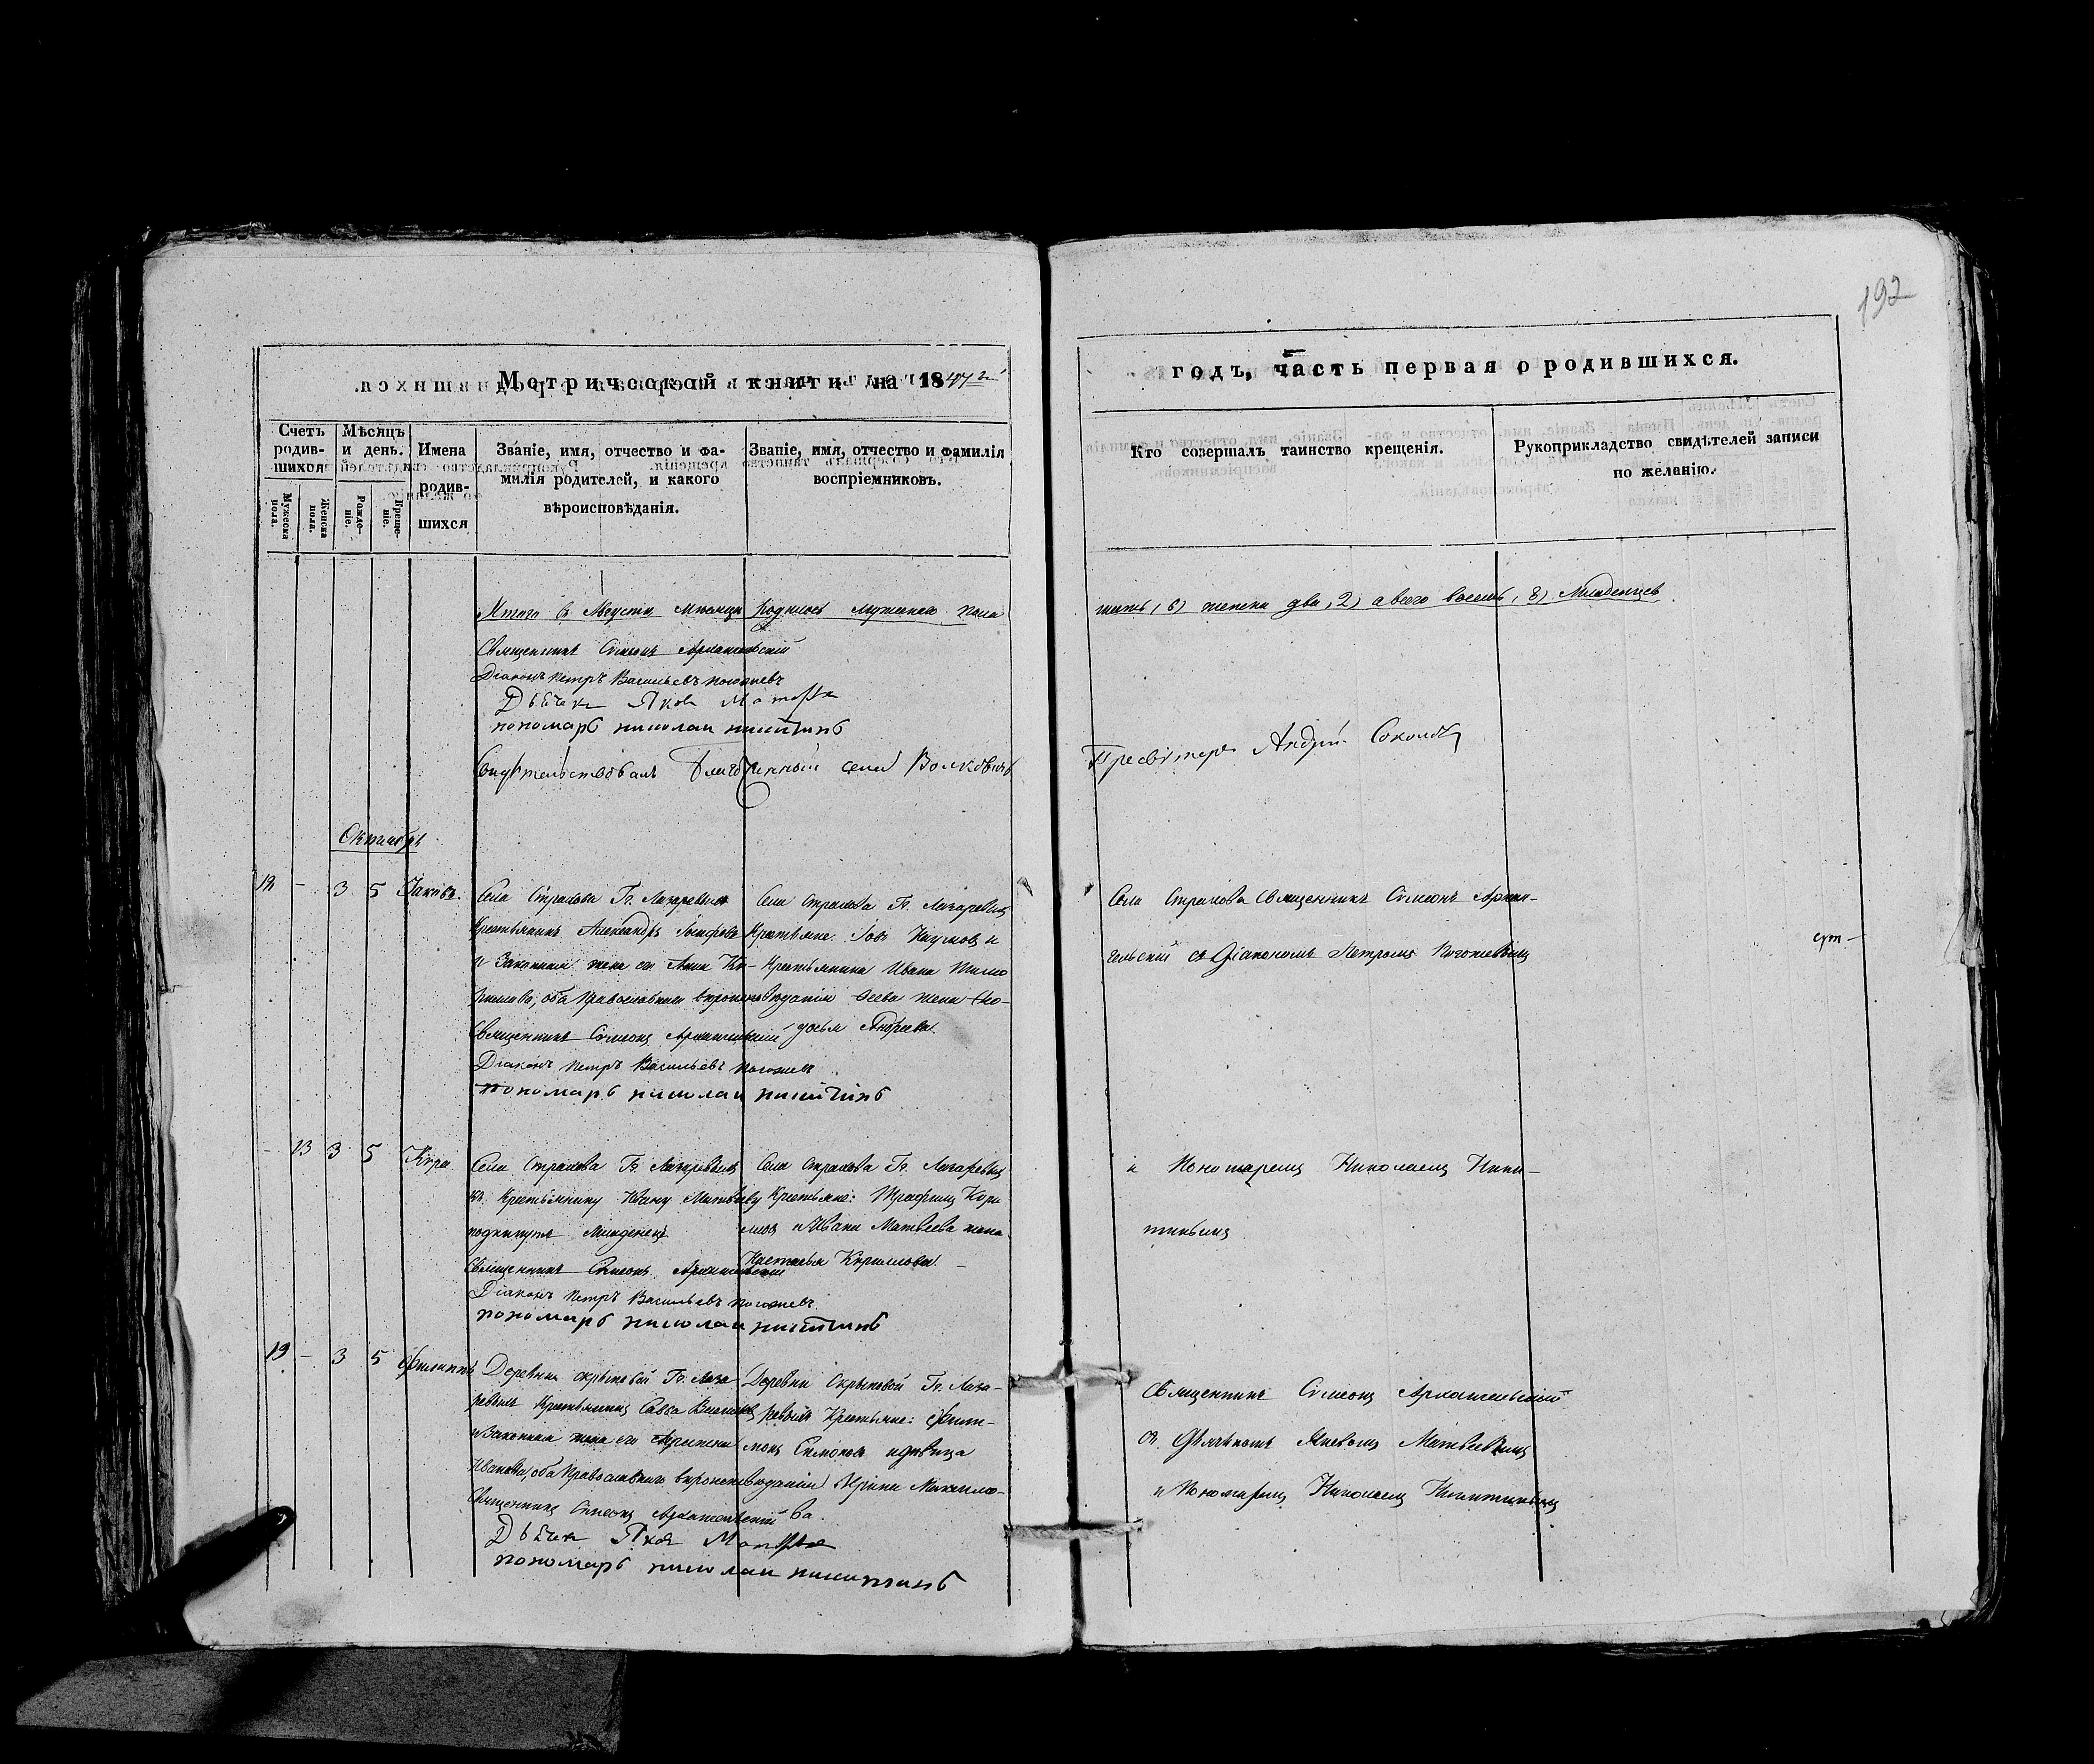 192
Метрической книги на 1847й
годъ, часть первая о родившихся.
Счетъ родив-шихся
Мѣсяцъ и день.
Имена родив-шихся
Званіе, имя, отчество и фа-
милія родителей, и какого
вѣроисповѣданія.
Званіе, имя, отчество и фамилія
воспріемниковъ.
Кто совершалъ таинство крещенія.
Рукоприкладство свидѣтелей записи
по желанію.
Мужеска пола.
Женска пола.
Рожде-ніе.
Креще-ніе.
Итого в Августѣ мѣсяцѣ родилось мужеска пола
шесть (6) женска два, 2) а всего восемь, 8) Младенцев
Священникъ Симеонъ Архангельскій
Діаконъ Петръ Васильевъ Погожевъ
Дьячек Яков Матвѣев
пономарь николаи никитинъ
Свидѣтельствовалъ Благочинный села Волковичь
Пресвитеръ Андрей Соколовъ
Октябрь
18 - 3 5 Іаковъ.
Села Страхова Гг. Лазаревыхъ
Крестьянинъ Александръ Іосифовъ
и Законная жена его Анна Ки-
рилова, оба Православнаго вероисповѣданія
Священникъ Симеонъ Архангельскій
Діаконъ Петръ Васильевъ Погожевъ
пономарь николаи никитинъ
Села Страхова Гг. Лазаревыхъ
Крестьяне: Іовъ Наумовъ и
Крестьянина Ивана Тимо
ѳеева жена Ѳео-
досья Андреева.
Села Страхова Священникъ Симеонъ Архан-
гельскій съ Діакономъ Петромъ Погожевымъ
- 13 3 5 Кира
Села Страхова Гг. Лазаревыхъ
къ Крестьянину Ивану Матвѣеву
подкинутъ Младенецъ
Священникъ Симеонъ Архангельскій
Діаконъ Петръ Васильевъ Погожевъ.
пономарь николаи никитинъ
Села Страхова Гг. Лазаревыхъ
Крестьяне: Трофимъ Кири
ловъ и Ивана Матвеева жена
Настасья Кирилова.
и Пономаремъ Николаемъ Ники-
тинымъ
19 - 3 5 Филиппъ
Деревни Скрыповой Гг. Лаза
ревыхъ Крестьянинъ Савва
и Законная жена его
Иванова, оба Православнаго вероисповѣданія
Священникъ Симеонъ Архангельскій
Дьячек Яков Матвѣев
пономарь николаи никитинъ
Деревни Скрыповой Гг. Лаза-
ревыхъ Крестьяне: Фили-
монъ Симоновъ и дѣвица
Ирина Максимо-
ва.
Священникъ Симеонъ Архангельскій
съ Дьячкомъ Яковомъ Матвеевымъ
и Пономаремъ Николаемъ Никитинымъ